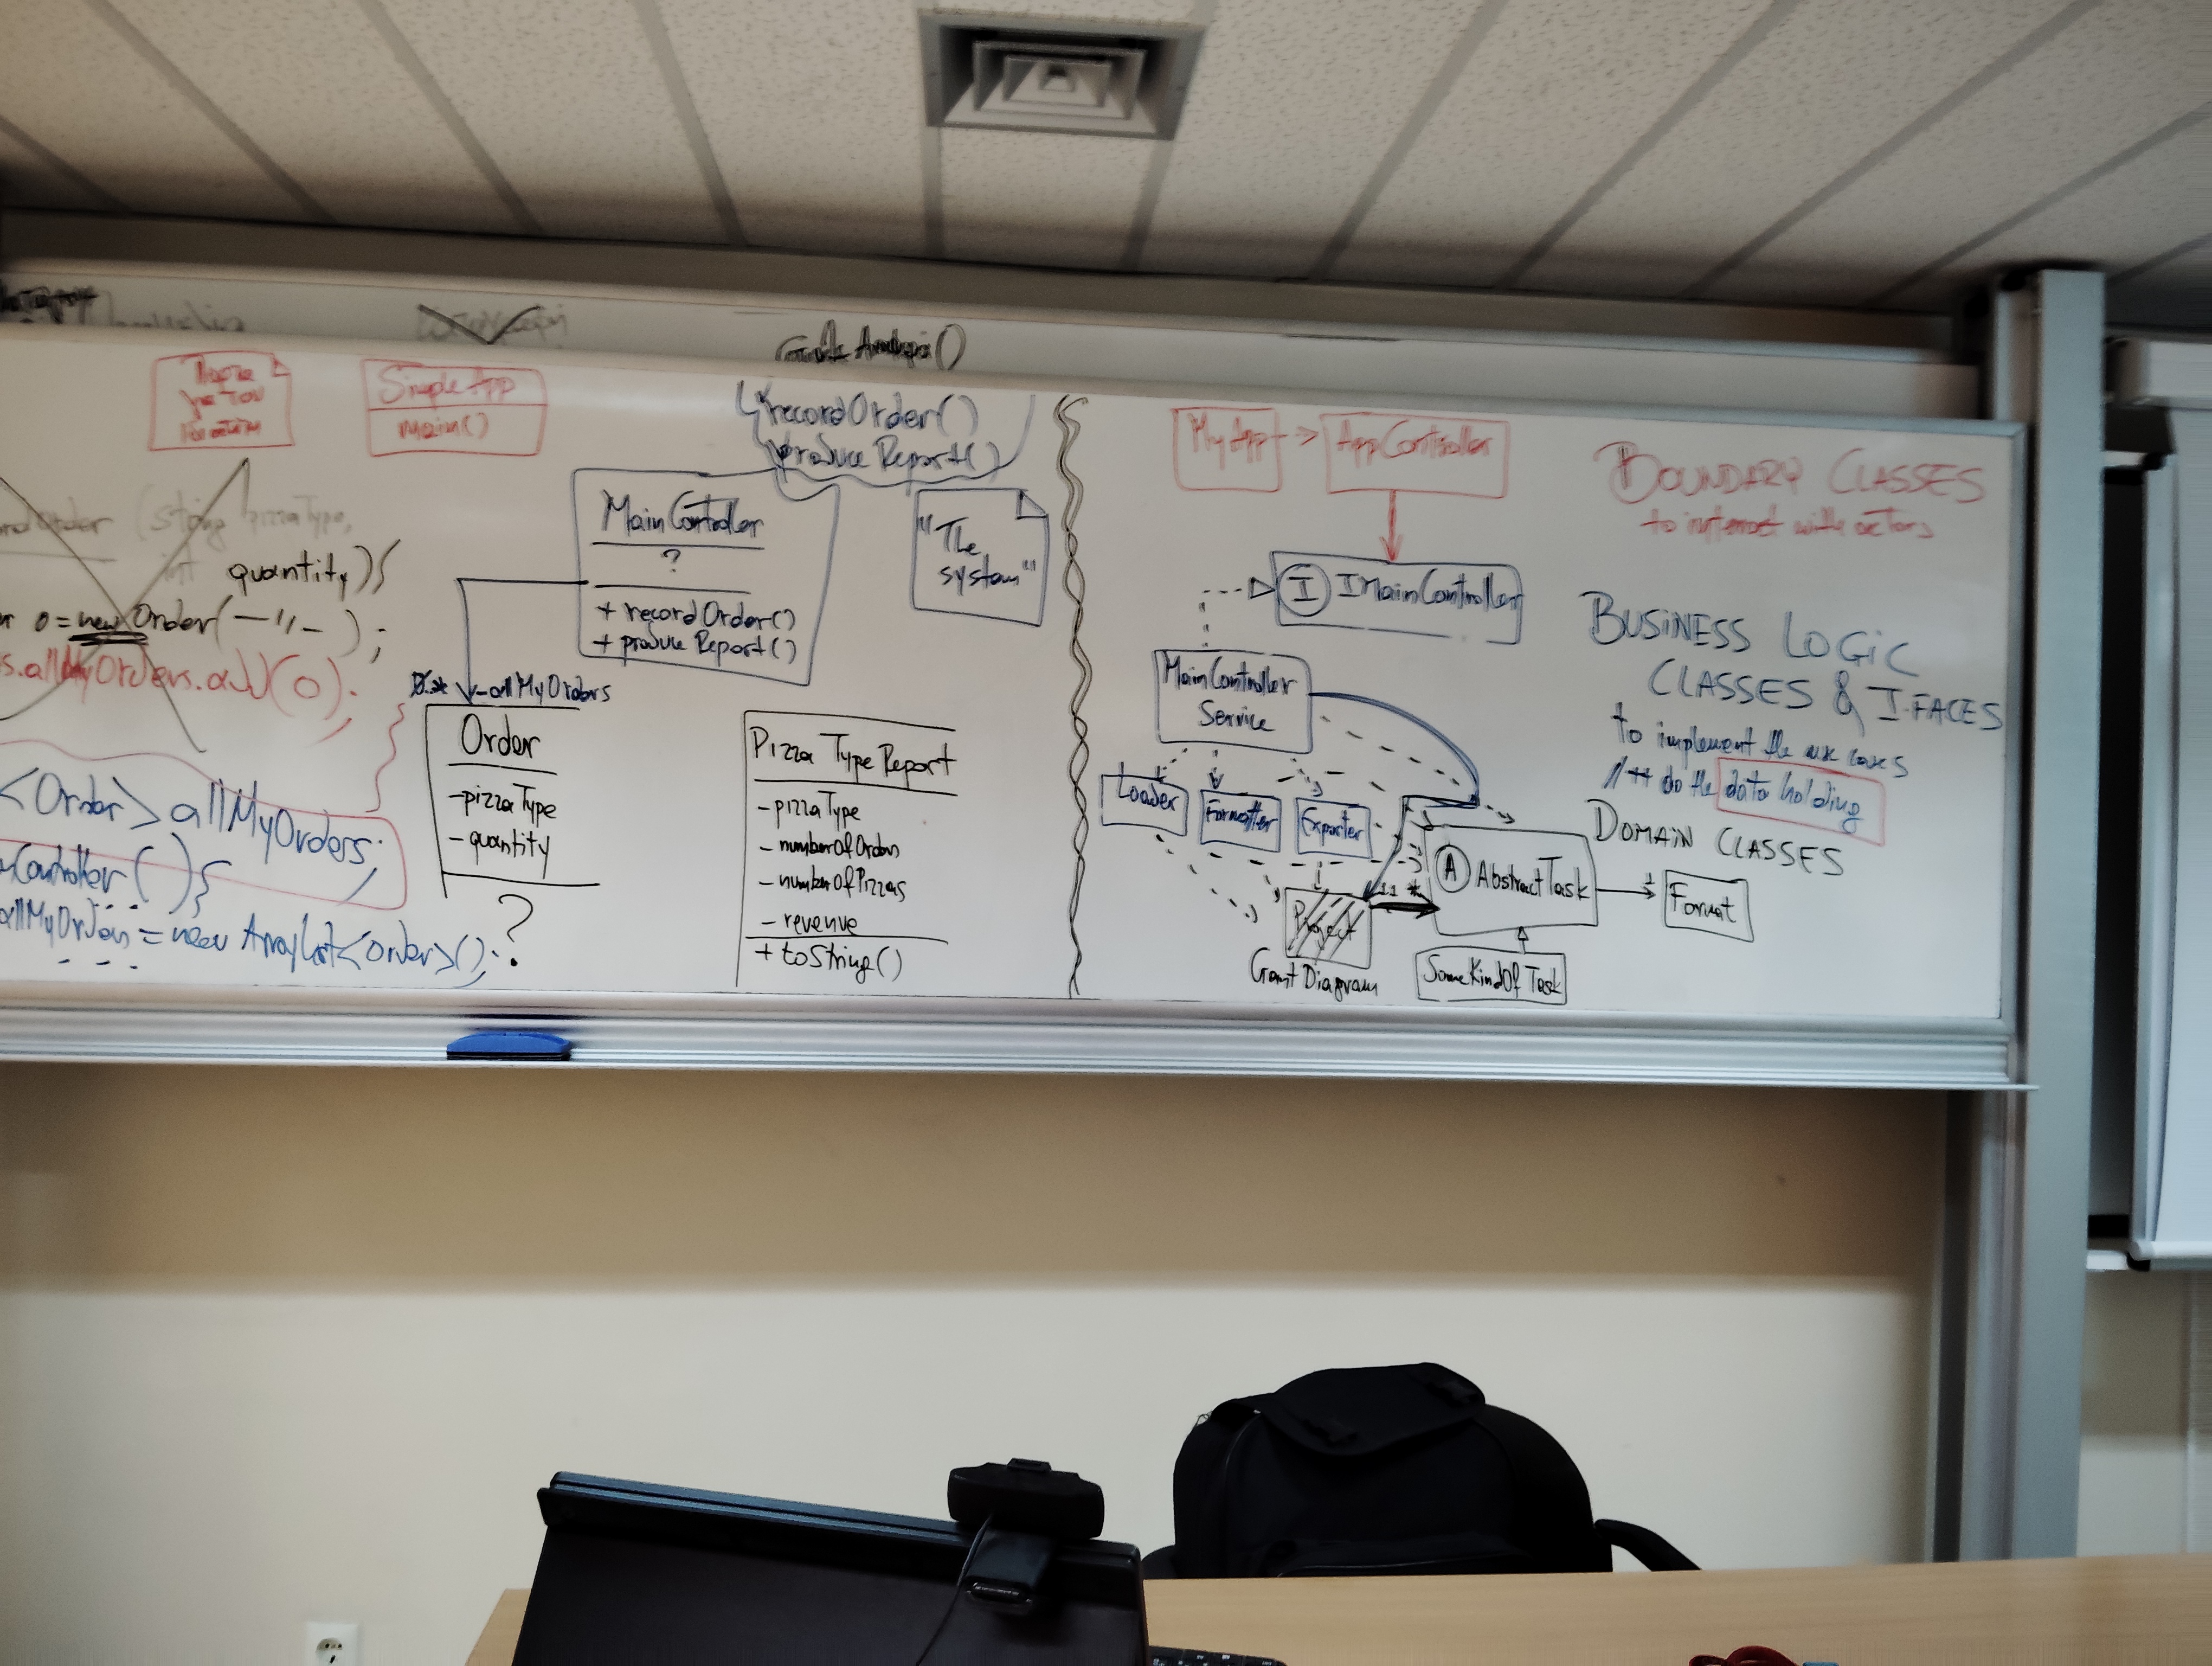 SimpleApp
main()
recordOrder()
produce Report()
MainController
?
+ recordOrder()
+ produce Report()
"The
system"
(string pizzaType,
int quantity){
o = new Order( — 〃 — );
allMyOrders.add(o);
<Order> allMyOrders;
Controller(){
allMyOrders = new ArrayList<Order>();
0..* - allMyOrders
Order
- pizzaType
- quantity
?
Pizza Type Report
- pizzaType
- numberOfOrders
- numberOfPizzas
- revenue
+ toString()
MyApp
AppController
I IMainController
MainController
Service
Loader
Formatter
Exporter
Project
Gant Diagram
1 *
A AbstractTask
1
Format
SomeKindOf Task
BOUNDARY CLASSES
to interact with actors
BUSINESS LOGIC
CLASSES & I.FACES
to implement the use cases
do the data holding
DOMAIN CLASSES